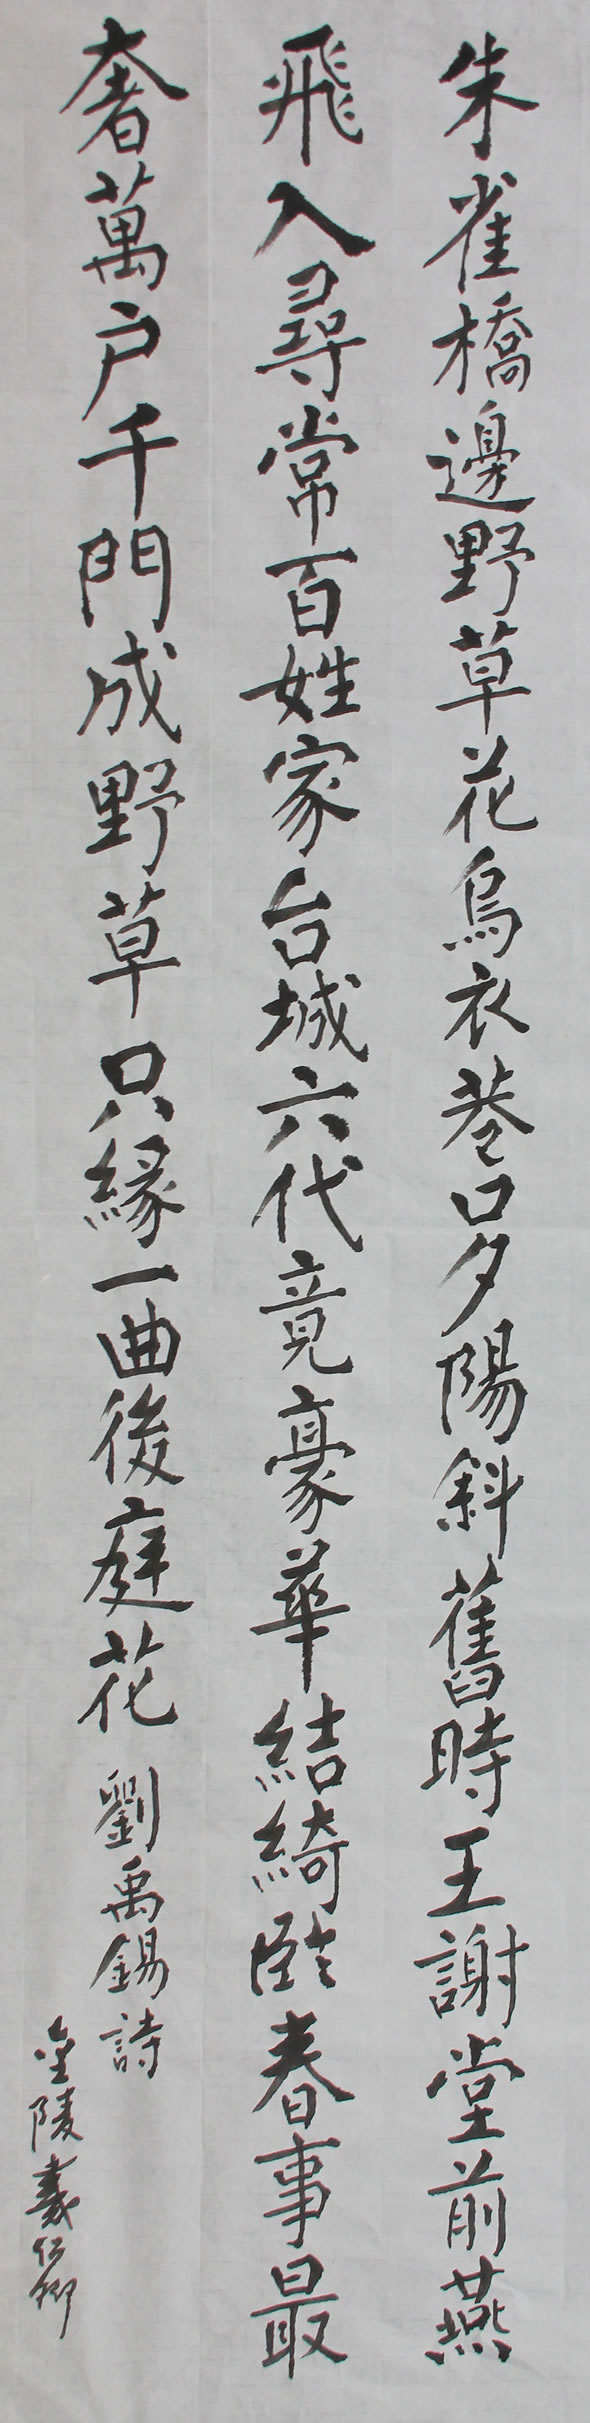 朱雀橋邊野草花烏衣巷口夕陽斜舊時王謝堂前燕
飛入尋常百姓家台城六代竟豪華結綺臨春事最
奢萬户千門成野草只緣一曲後庭花
劉禹錫詩
金陵 仁卿